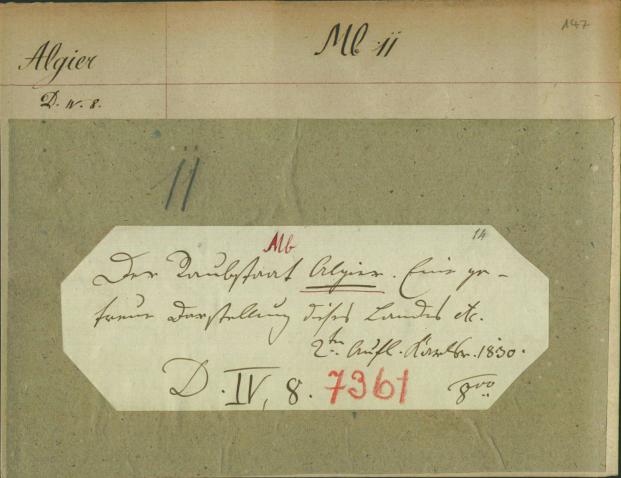 147
Mb ii
Algier
D. IV. 8.
11
14
Mb
Der Raubstaat Algier. Eine ge-
treue Darstellung dises Landes etc.
2te Aufl. Karlsr. 1830.
D. IV, 8. 7361 8vo